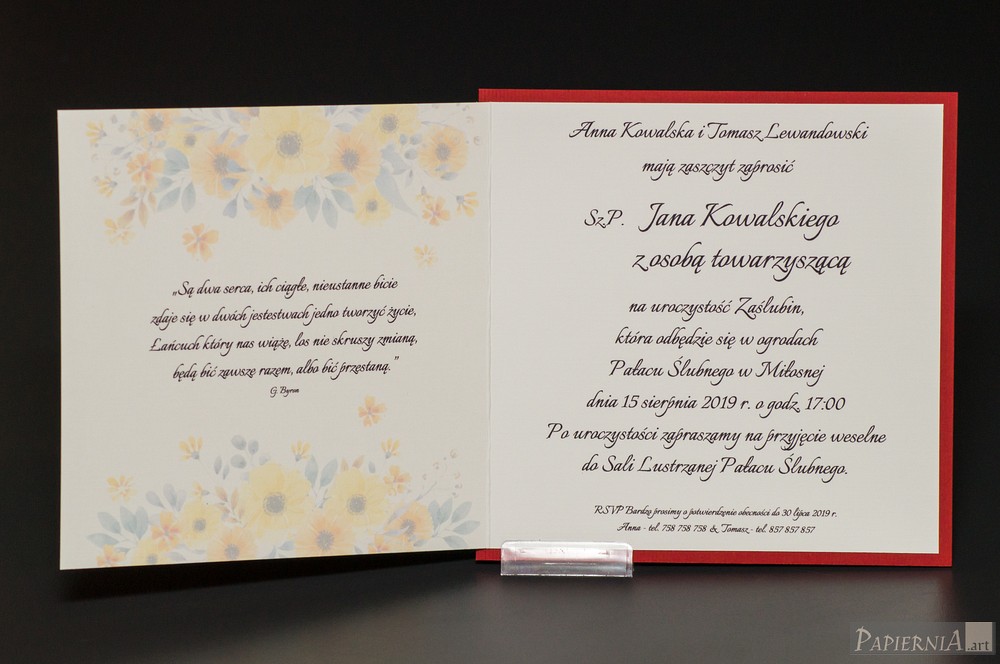 „Są dwa serca, ich ciągłe, nieustanne bicie
zdaje się w dwóch jestestwach jedno tworzyć życie,
Łańcuch który nas wiąże, los nie skruszy zmianą,
będą bić zawsze razem, albo bić przestaną.”
G. Byron
Anna Kowalska i Tomasz Lewandowski
mają zaszczyt zaprosić
Sz.P. Jana Kowalskiego
z osobą towarzyszącą
na uroczystość Zaślubin,
która odbędzie się w ogrodach
Pałacu Ślubnego w Miłosnej
dnia 15 sierpnia 2019 r. o godz. 17:00
Po uroczystości zapraszamy na przyjęcie weselne
do Sali Lustrzanej Pałacu Ślubnego.
RSVP Bardzo prosimy o potwierdzenie obecności do 30 lipca 2019 r.
Anna - tel. 758 758 758 & Tomasz - tel. 857 857 857
PAPIERNIA.art